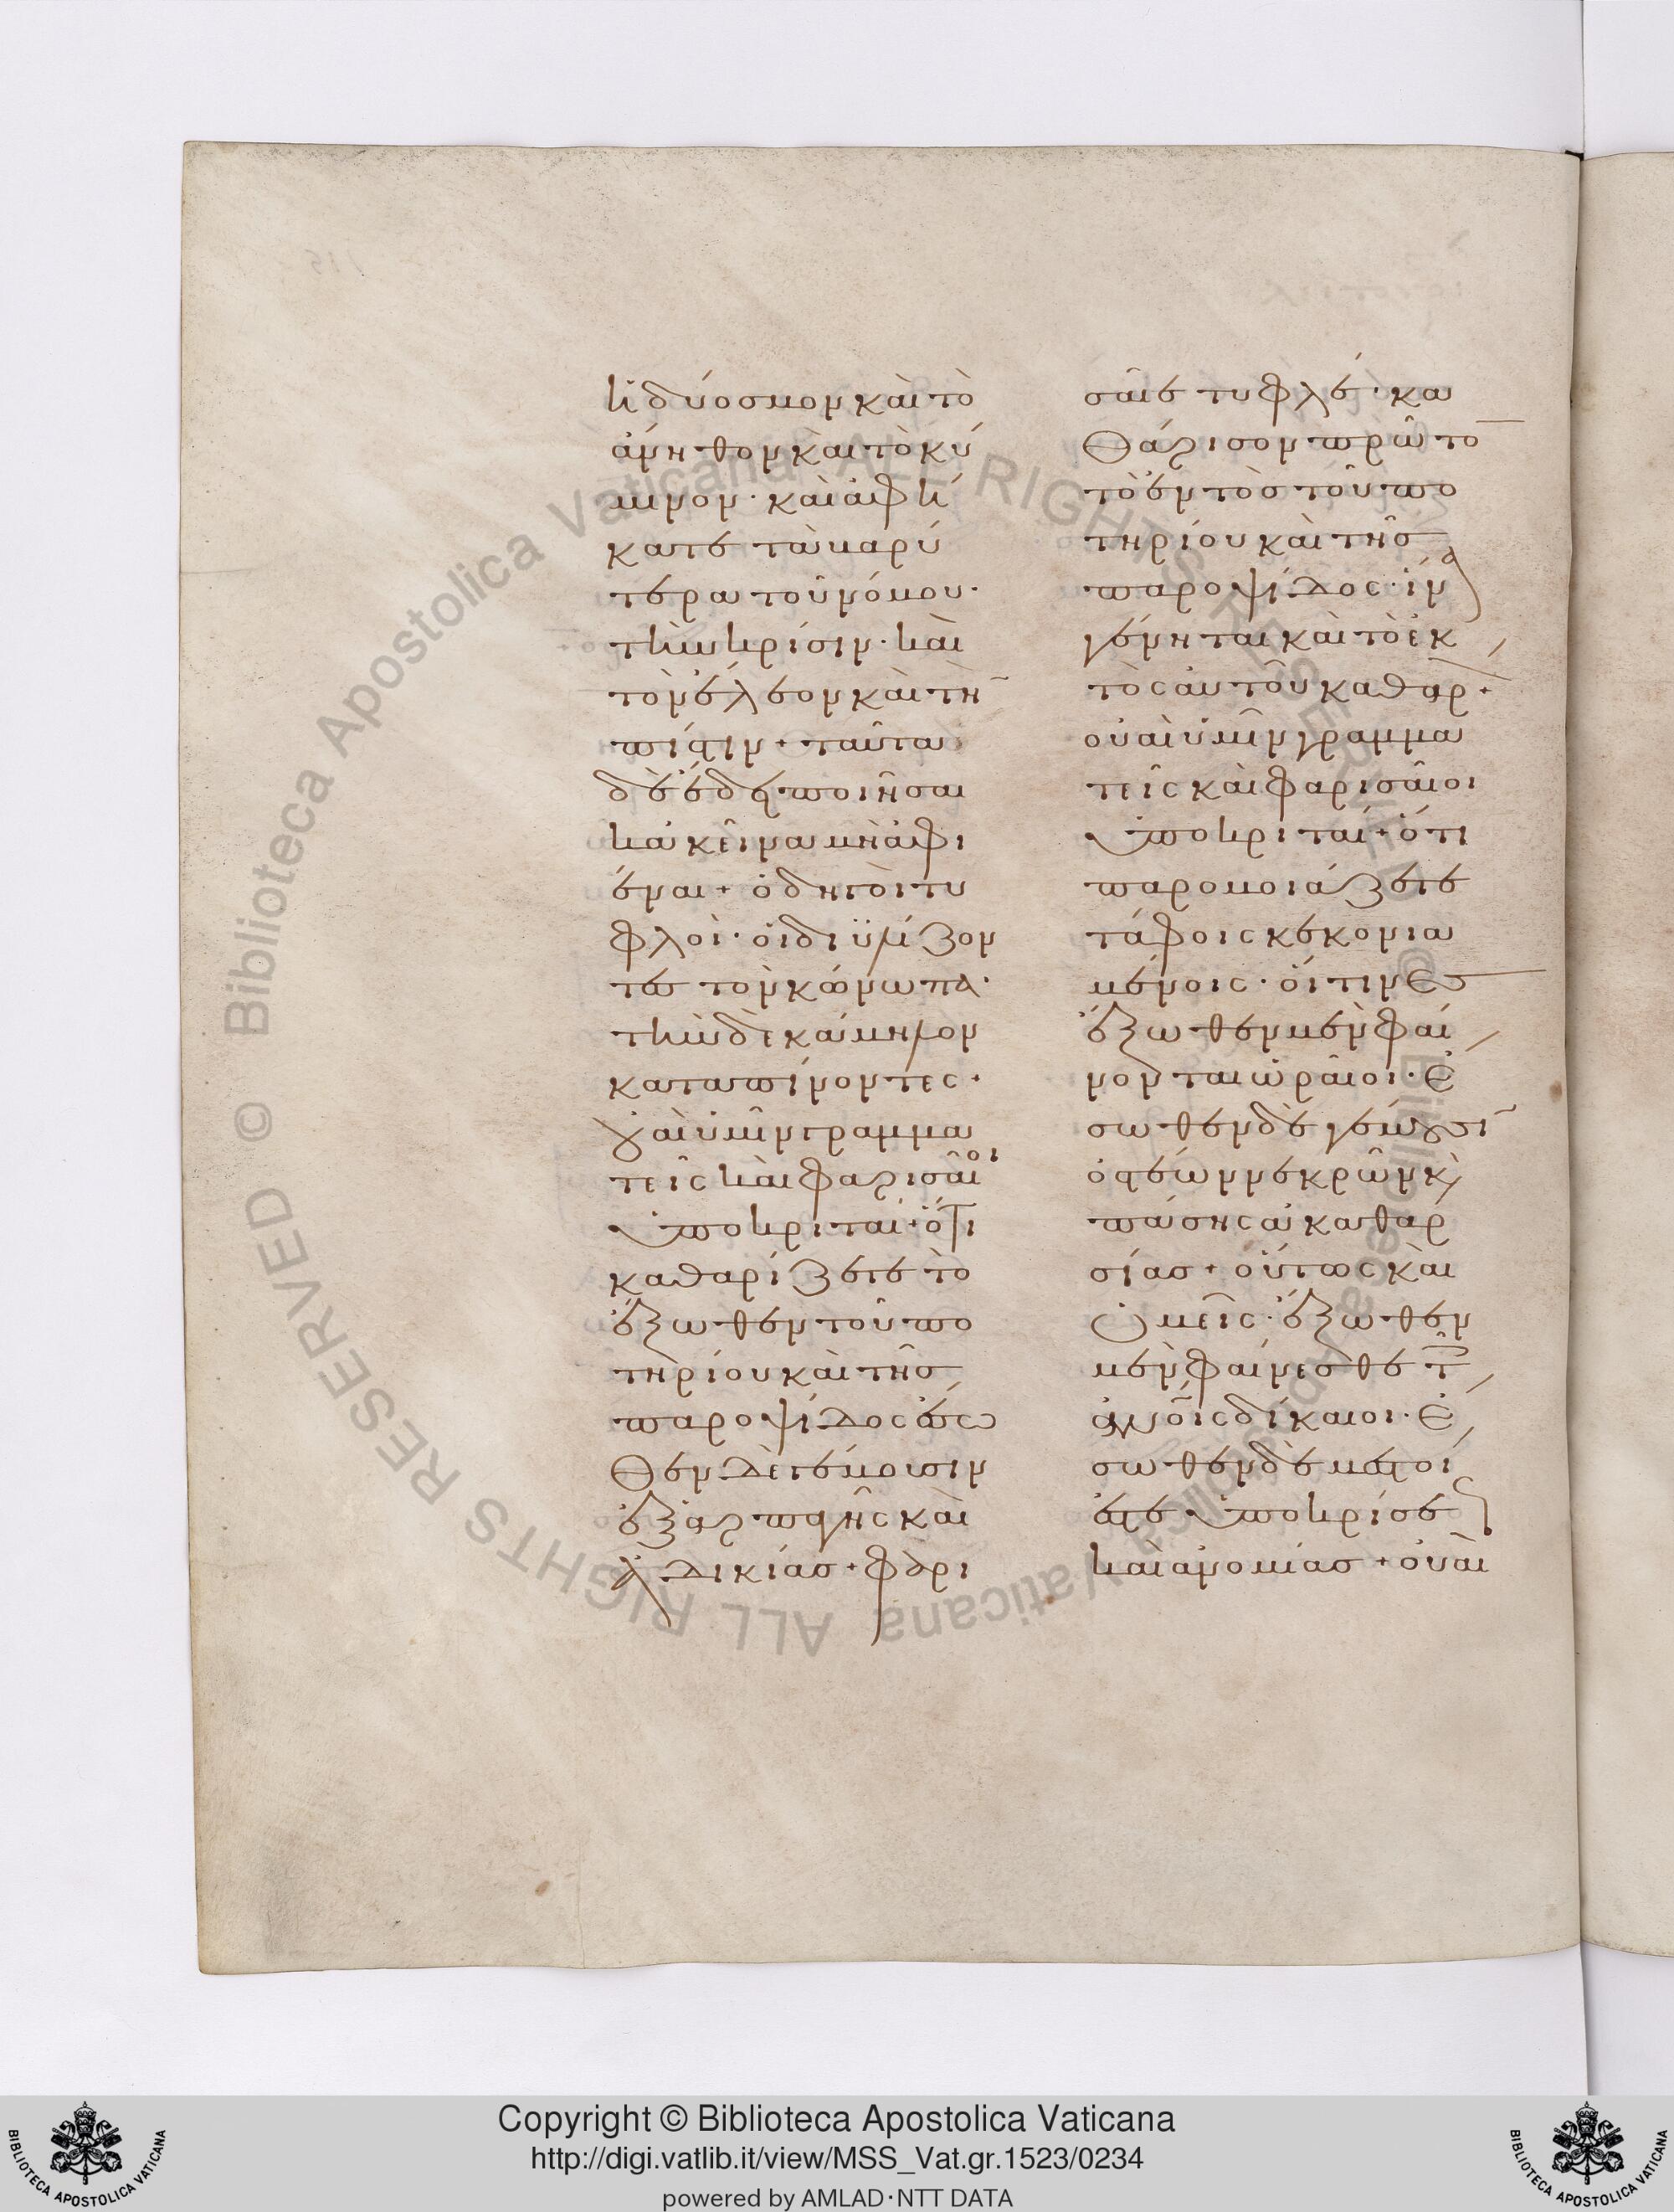 ἡδύοσμον καὶ τὸ
ἄνηθον καὶ τὸ κύ
μινον· καὶ ἀφή
κατε τὰ βαρύ
τερα τοῦ νόμου·
τὴν κρίσιν· καὶ
τὸν ἔλεον καὶ τὴ̄
πίστιν + ταῦτα
δὲ ἔδει ποιῆσαι
κἀκεῖνα μὴ ἀφι
έναι + ὁδηγοὶ τυ
φλοὶ· οἱ διϋλίζον
τες τὸν κώνωπα·
τὴν δὲ κάμηλον
καταπίνοντες +
Οὐαὶ ὑμῖν γραμμα
τεῖς καὶ φαρισαῖοι
ὑποκριταί + ὅτι
καθαρίζετε τὸ
ἔξωθεν τοῦ πο
τηρίου καὶ τῆς
παροψίδος ἔσω
θεν δὲ γέμουσιν
ἐξ ἁρπαγῆς καὶ
ἀδικίας + φαρι
σαῖε τυφλέ· κα
θάρισον πρῶτο̄
τὸ ἐντὸς τοῦ πο
τηρίου καὶ τῆς
παροψίδος· ἵνα
γένηται καὶ τὸ ἐκ
τὸς αὐτοῦ καθαρ +
οὐαὶ ὑμῖν γραμμα
τεῖς καὶ φαρισαῖοι
ὑποκριταί + ὅτι
παρομοιάζετε
τάφοις κεκονια
μένοις· οἵτινες
ἔξωθεν μὲν φαί
νονται ὡραῖοι· ἔ
σωθεν δὲ γέμουσῑ
ὀστέων νεκρῶν κ(αὶ)
πάσης ἀκαθαρ
σίας + οὕτως καὶ
ὑμεῖς· ἔξωθεν
μὲν φαίνεσθε τ
ἀνοις δίκαιοι· ἔ
σωθεν δὲ μεστοί
ἐστε ὑποκρίσε
καὶ ἀνομίας + οὐαὶ
Copyright © Biblioteca Apostolica Vaticana
http://digi.vatlib.it/view/MSS_Vat.gr.1523/0234
powered by AMLAD·NTT DATA
BIBLIOTECA APOSTOLICA VATICANA
BIBLIOTECA APOSTOLICA VATICANA
© Biblioteca Apostolica Vaticana ALL RIGHTS RESERVED
© Biblioteca Apostolica Vaticana ALL RIGHTS RESERVED